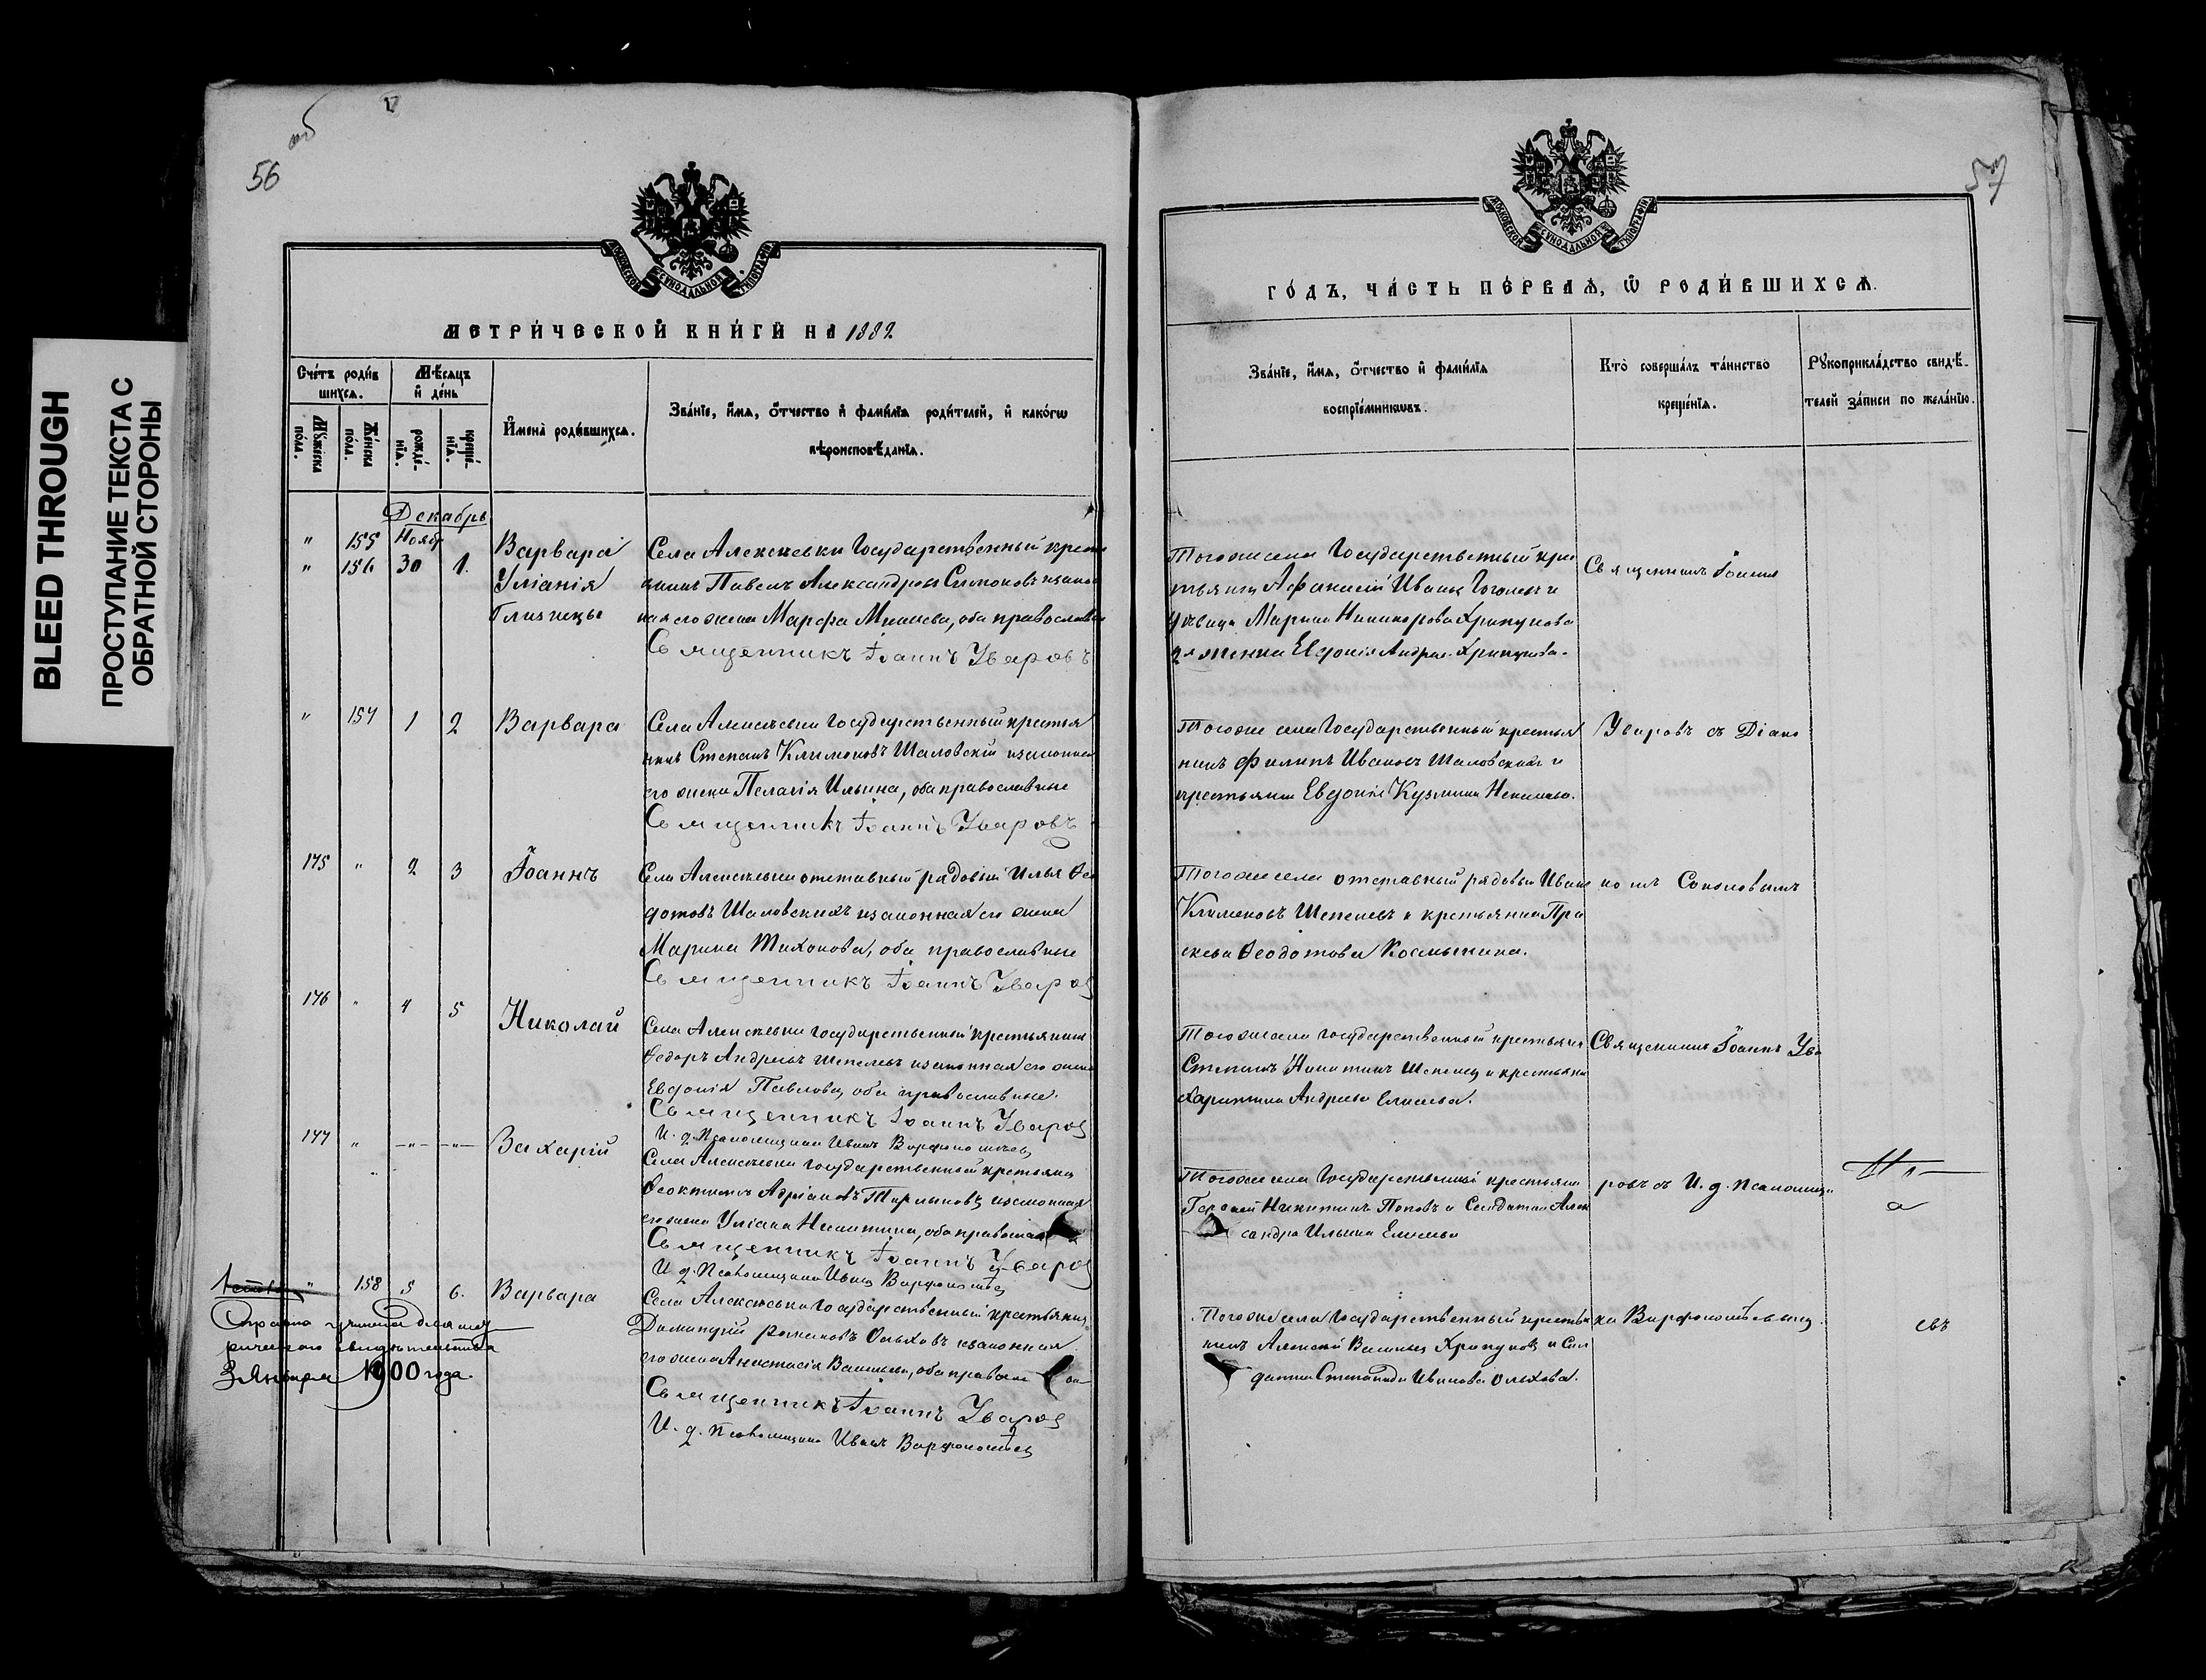 BLEED THROUGH
ПРОСТУПАНИЕ ТЕКСТА С
ОБРАТНОЙ СТОРОНЫ
56
МОСКОВСКОЙ СУНОДАЛЬНОЙ ТИПОГРАФІИ
МЕТРИ́ЧЕСКОЙ КНИ́ГИ НА 1882
Сче́тъ роди́в
шихсѧ.
Мꙋ́жеска
по́ла.
Же́нска
по́ла.
Мѣ́сѧцъ
и҆ де́нь
рожде́-
нїѧ.
креще́-
нїѧ.
И҆мена̀ роди́вшихсѧ.
Зва́нїе, и҆́мѧ, ѻ҆́тчество и҆ фами́лїѧ роди́телей, и҆ како́гѡ
вѣроисповѣ́данїѧ.
Декабрь
Ноябр
" 155
" 156 30 1.
Варвара
Уліанія
близнецы
Села Алексеевки Государственный крест
янинъ Павелъ Александровъ Симоновъ изакон
ная его жена Марфа Мишева, оба православн
Священникъ Іоаннъ Уваровъ
" 157 1 2 Варвара
Села Алексеевки Государственный крестья
нинъ Степанъ Климоновъ Шаловскій изаконная
его жена Пелагія Ильина, оба православные
Священникъ Іоаннъ Уваровъ
175 " 2 3 Іоаннъ
Села Алексеевки отставный рядовый Илья Ѳе
дотовъ Шаловскихъ изаконная его жена
Марина Тихонова, оба православные
Священникъ Іоаннъ Уваров
176 " 4 5 Николай
Села Алексеевки Государственный крестьянинъ
Ѳедоръ Андреевъ Шепелевъ изаконная его жена
Евдокія Павлова, оба православные.
Священникъ Іоаннъ Уваров
И. д. Псаломщика Иванъ Варфоломѣев
177 " -"- -"- Захарій
Села Алексеевки Государственный крестьянин
Ѳеоктистъ Адріановъ изаконная
его жена Уліана Никитина, оба православн
Священникъ Іоаннъ Уваров
И. д. Псаломщика Иванъ Варфоломѣев
" 158 5 6. Варвара
Села Алексеевки Государственный крестьянин
Димитрій Романовъ Ольховъ изаконная
его жена Анастасія Васильева, оба православн
Священникъ Іоаннъ Уваров
И. д. Псаломщика Иванъ Варфоломѣев
Справка учинена для мет
рическаго свидѣтельства
3 Января 1900 года.
57
МОСКОВСКОЙ СУНОДАЛЬНОЙ ТИПОГРАФІИ
ГО́ДЪ, ЧА́СТЬ ПЕ́РВАѦ, Ѡ҆ РОДИ́ВШИХСѦ.
Зва́нїе, и҆́мѧ, ѻ҆́тчество и҆ фами́лїѧ
воспрїе́мникѡвъ.
Кто̀ соверша́лъ та́инство
креще́нїѧ.
Рꙋкоприкла́дство свидѣ́-
телей за́писи по жела́нїю.
Тогоже села Государственный крес
тьянин Афанасій Иванов Гоголевъ и
дѣвица Марина Никифорова Хрипунова
2я жена Евдокія Андрее. Хрипунова.
Священникъ Іоаннъ
Тогоже села Государственный крестья
нинъ Филипъ Ивановъ Шаловскихъ и
крестьянка Евдокія Кузмина
Уваровъ съ Діако
Тогоже села отставный рядовый Иванъ
Климоновъ Шепелевъ и крестьянка Пра
сковья Ѳеодотова Космынина.
номъ Соколовымъ
Тогоже села Государственный крестьянин
Степанъ Никитинъ Шепелев и крестьянка
Харитина Андреева Елисеева.
Священникъ Іоаннъ Ува
Тогоже села Государственный крестьянин
Никитинъ Поповъ и Солдатка Алек
сандра Ильина Елисеева
ровъ съ И. д. псаломщи
Тогоже села Государственный крестья
нинъ Алексѣй Васильев Хрипунов и Сол
датка Степанида Иванова Ольхова.
ка Варфоломѣевымъ